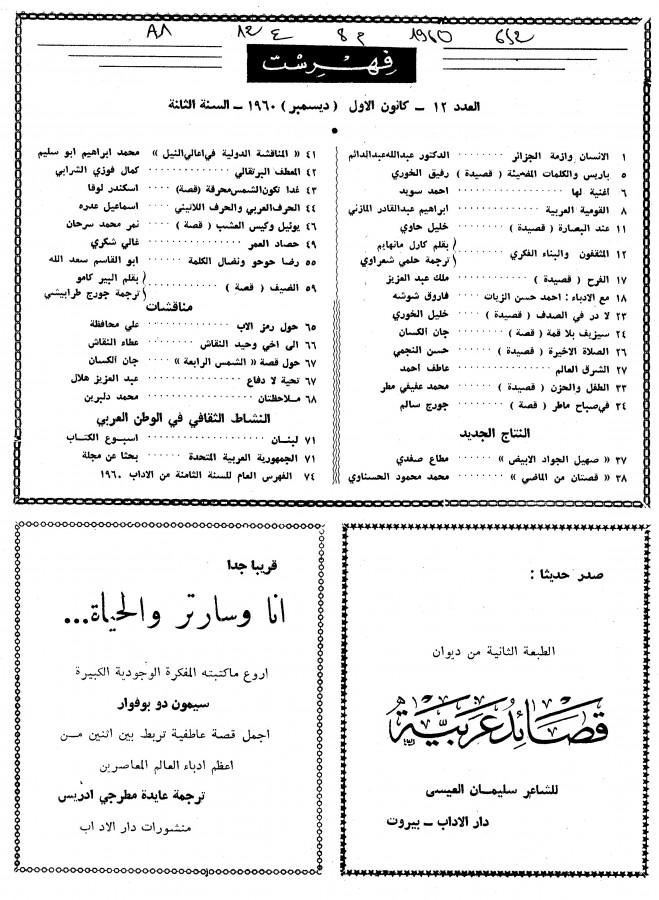 652 1960 م 8 ع 12 A8
فهرست
العدد ١٢ – كانون الاول ( ديسمبر ) ١٩٦٠ – السنة الثانة
١ الانسان وازمة الجزائر ········ الدكتور عبدالله عبدالدائم
٥ باريس والكلمات المضيئة ( قصيدة ) رفيق الخوري
٦ اغنية لها ················ احمد سويد
٨ القومية العربية ········ ابراهيم عبدالقادر المازني
١١ عند البصارة ( قصيدة ) ······· خليل حاوي
١٢ المثقفون والبناء الفكري ······ ( بقلم كارل مانهايم
ترجمة حلمي شعراوي
١٧ الفرح ( قصيدة ) ·········· ملك عبد العزيز
١٨ مع الادباء : احمد حسن الزيات ···· فاروق شوشه
٢٣ لا در في الصدف ( قصيدة ) ···· خليل الخوري
٢٤ سيزيف بلا قمة ( قصة ) ······ جان الكسان
٢٦ الصلاة الاخيرة ( قصيدة ) ····· حسن النجمي
٢٧ الشرق العالم ············ عاطف احمد
٣٣ الطفل والحزن ( قصيدة ) ···· محمد عفيفي مطر
٣٤ في صباح ماطر ( قصة ) ····· جورج سالم
النتاج الجديد
٣٧ « صهيل الجواد الابيض » ······ مطاع صفدي
٣٨ « قصتان من الماضي » ······ محمد محمود الحسناوي
٤١ « المناقشة الدولية في اعالي النيل » محمد ابراهيم ابو سليم
٤٢ المعطف البرتقالي ········ كمال فوزي الشرابي
٤٣ غدا تكون الشمس محرقة (قصة) ···· اسكندر لوقا
٤٤ الحرف العربي والحرف اللاتيني ···· اسماعيل عدره
٤٦ يوئيل وكيس العشب ( قصة ) ··· نمر محمد سرحان
٤٩ حصاد العمر ············ غالي شكري
٥٥ رضا حوحو ونضال الكلمة ···· ابو القاسم سعد الله
٥٩ الضيف ( قصة ) ········ ( بقلم البير كامو
ترجمة جورج طرابيشي
مناقشات
٦٥ حول رمز الاب ·········· علي محافظة
٦٦ الى اخي وحيد النقاش ········ عطاء النقاش
٦٧ حول قصة « الشمس الرابعة » ···· جان الكسان
٦٧ تحية لا دفاع ·········· عبد العزيز هلال
٦٨ ملاحظتان ············ محمد دلبرين
النشاط الثقافي في الوطن العربي
٧١ لبنان ················ اسبوع الكتاب
٧١ الجمهورية العربية المتحدة ······ بحثا عن مجلة
٧٤ الفهرس العام للسنة الثامنة من الاداب ١٩٦٠
صدر حديثا :
الطبعة الثانية من ديوان
قصائد عربية
للشاعر سليمان العيسى
دار الاداب – بيروت
قريبا جدا
انا وسارتر والحياة...
اروع ماكتبته المفكرة الوجودية الكبيرة
سيمون دو بوفوار
اجمل قصة عاطفية تربط بين اثنين من
اعظم ادباء العالم المعاصرين
ترجمة عايدة مطرجي ادريس
منشورات دار الاداب